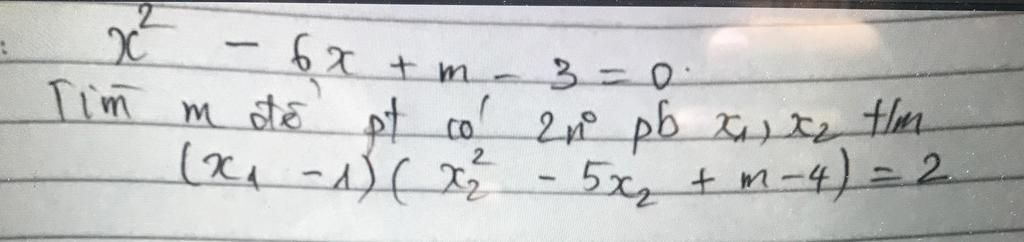 x² - 6x + m - 3 = 0.
Tìm m để pt có 2n⁰ pb x₁, x₂ t/m
(x₁ - 1)(x₂² - 5x₂ + m - 4) = 2